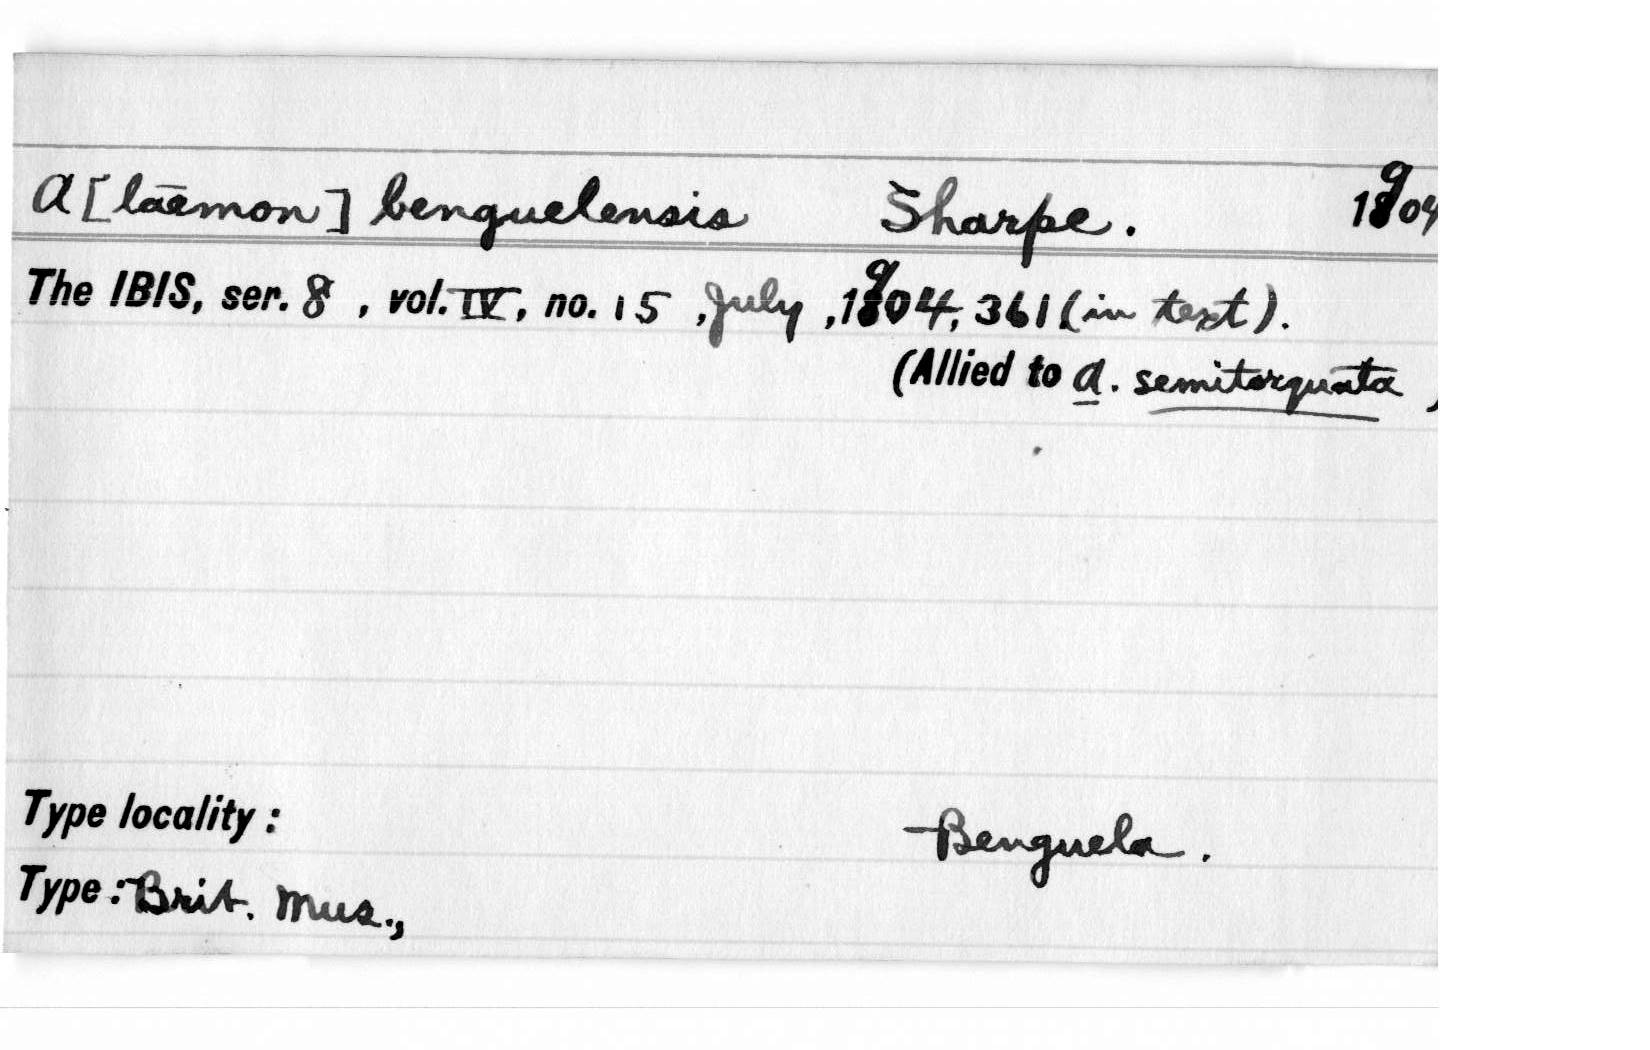 A[laëmon] benguelensis Sharpe. 1904
The IBIS, ser. 8 , vol. IV, no. 15 , July , 1904, 361 (in text).
(Allied to A. semitorquata )
Type locality : Benguela.
Type : Brit. Mus.,